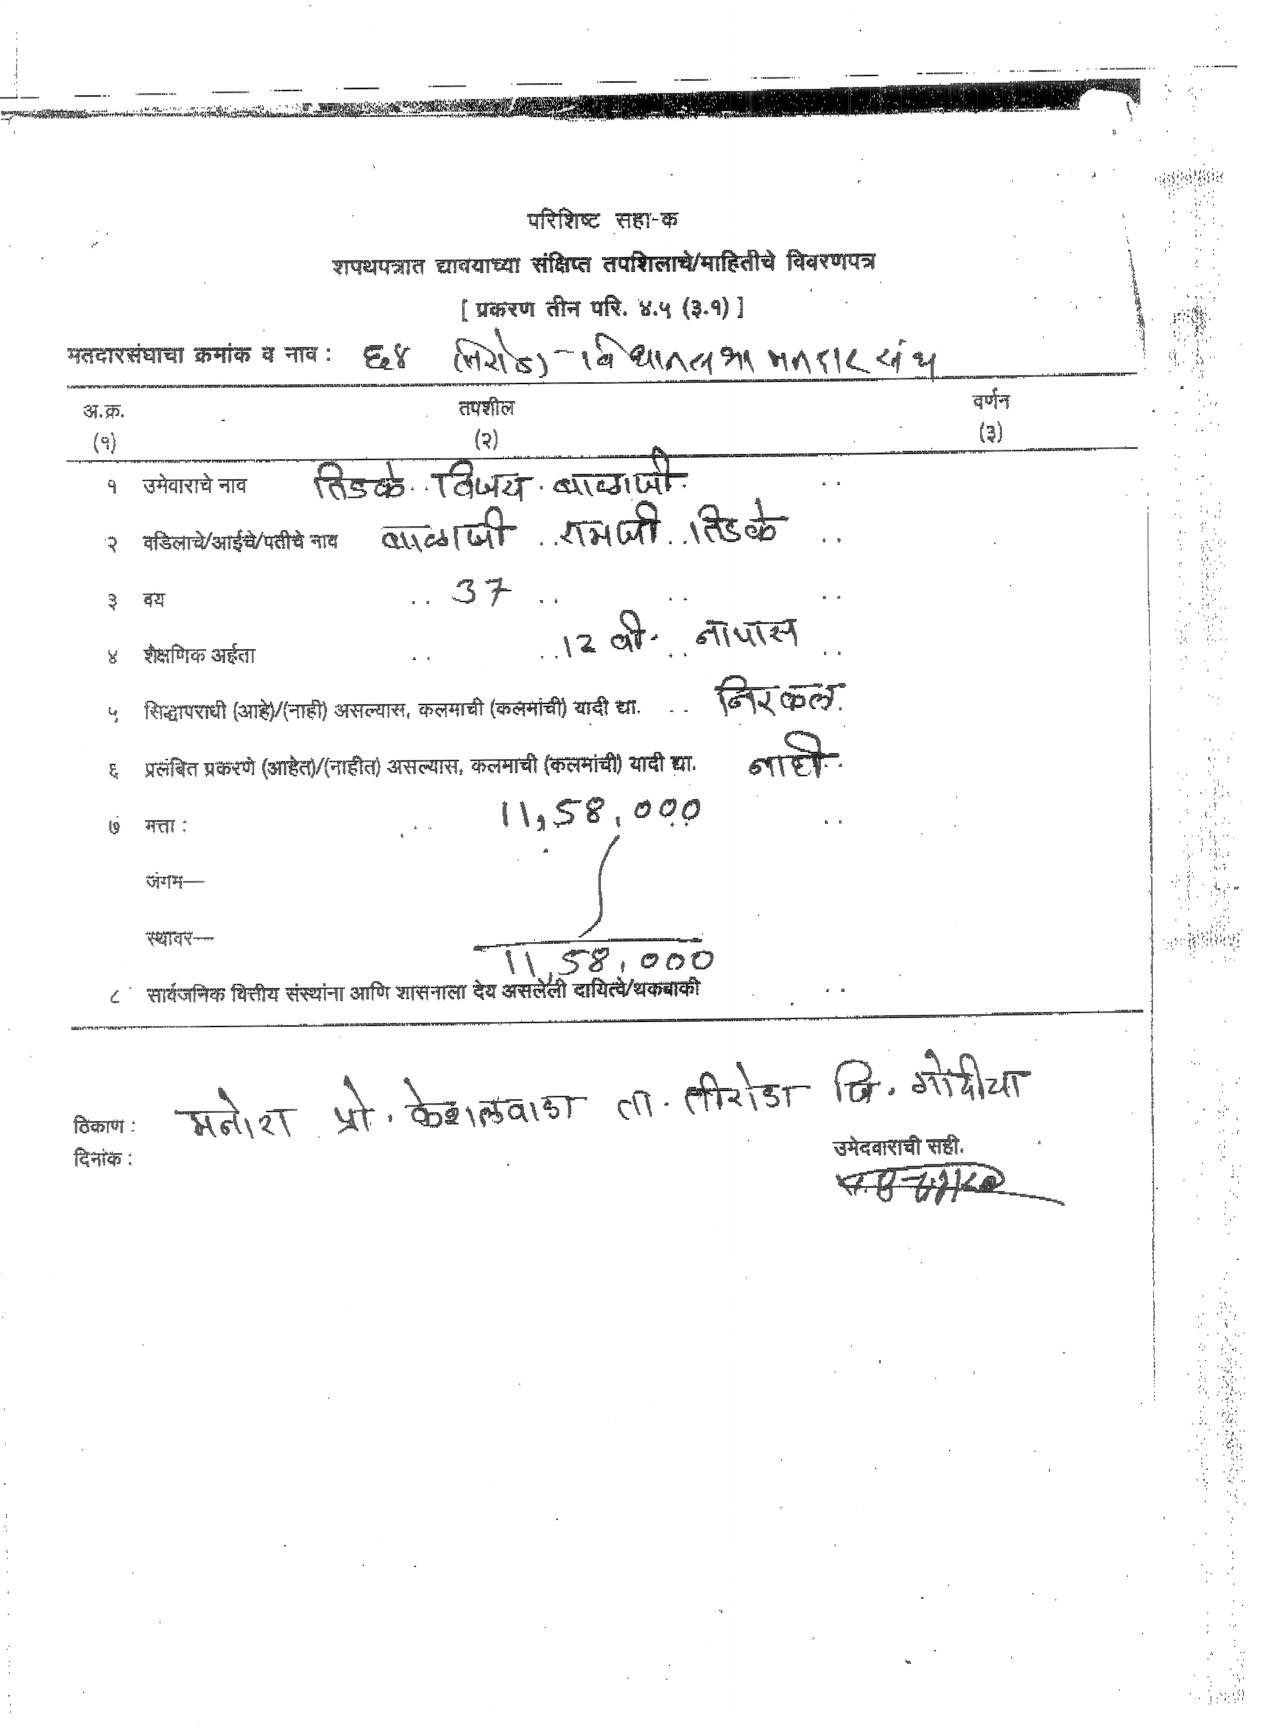 परिशिष्ट सहा-क
शपथपत्रात द्यावयाच्या संक्षिप्त तपशिलाचे/माहितीचे विवरणपत्र
[ प्रकरण तीन परि. ४.५ (३.१) ]
मतदारसंघाचा क्रमांक व नाव : ६४ तिरोडा - विधानसभा मतदार संघ
अ.क्र. तपशील वर्णन
(१) (२) (३)
१ उमेवाराचे नाव तिडके . . विजय . बाळाजी . . .
२ वडिलाचे/आईचे/पतीचे नाव बाळाजी . . रामजी . . तिडके . .
३ वय . . 37 . . . . . .
४ शैक्षणिक अर्हता . . . . 12 वी . . . नापास . .
५ सिद्धापराधी (आहे)/(नाही) असल्यास, कलमाची (कलमांची) यादी द्या. . . निरकल .
६ प्रलंबित प्रकरणे (आहेत)/(नाहीत) असल्यास, कलमाची (कलमांची) यादी द्या. नाही . .
७ मत्ता : . . . 11,58,000 . .
जंगम—
स्थावर—
11,58,000
८ सार्वजनिक वित्तीय संस्थांना आणि शासनाला देय असलेली दायित्वे/थकबाकी . . .
ठिकाण : मनोरा प्रो . केशलवाडा ता . तीरोडा जि . गोंदीया
दिनांक :
उमेदवाराची सही.